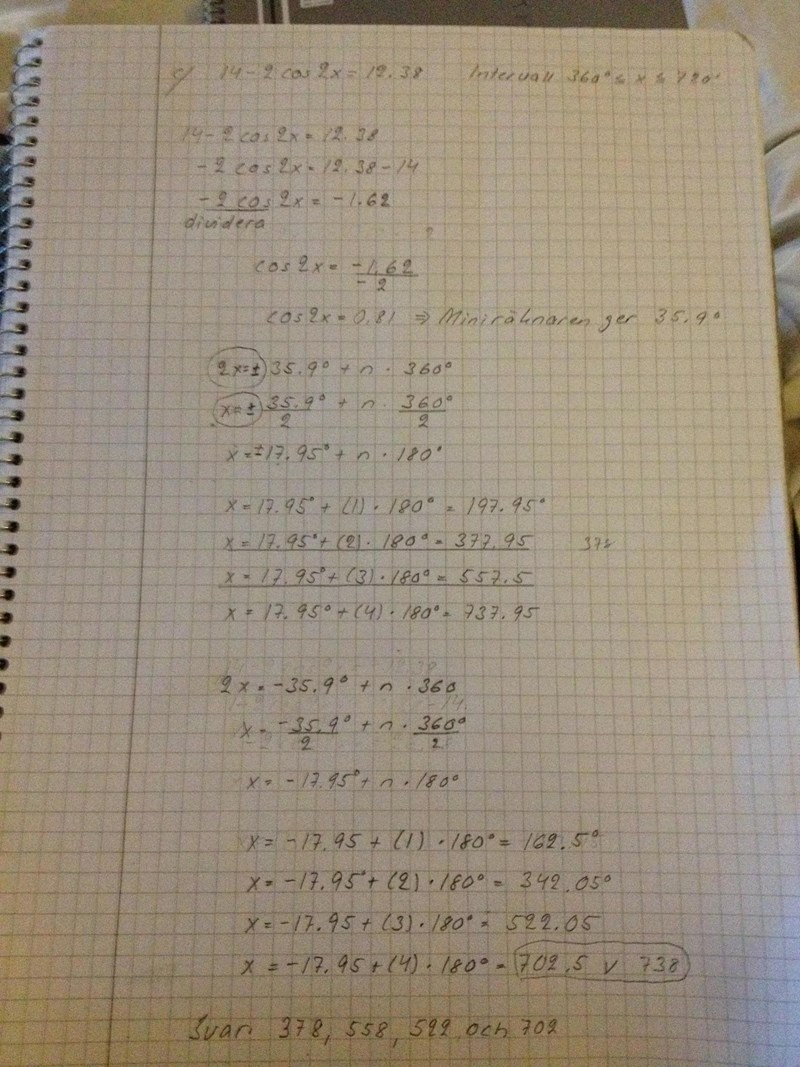 c) 14-2 cos 2x = 12.38 Intervall 360° ≤ x ≤ 720°
14-2 cos 2x = 12.38
-2 cos 2x = 12.38-14
-2 cos 2x = -1.62
dividera
?
cos 2x = -1.62/-2
cos 2x = 0,81 ⇒ Miniräknaren ger 35.9°
2x=± 35.9° + n · 360°
x=± 35.9°/2 + n · 360°/2
x=±17.95° + n · 180°
x = 17.95° + (1) · 180° = 197.95°
x = 17.95° + (2) · 180° = 377.95 378
x = 17.95° + (3) · 180° = 557.5
x = 17.95° + (4) · 180° = 737.95
2x = -35.9° + n · 360
x = -35.9°/2 + n · 360°/2
x = -17.95° + n · 180°
x = -17.95 + (1) · 180° = 162.5°
x = -17.95° + (2) · 180° = 342.05°
x = -17.95 + (3) · 180° = 522.05
x = -17.95 + (4) · 180° = 702.5 v 738
Svar: 378, 558, 522 och 702